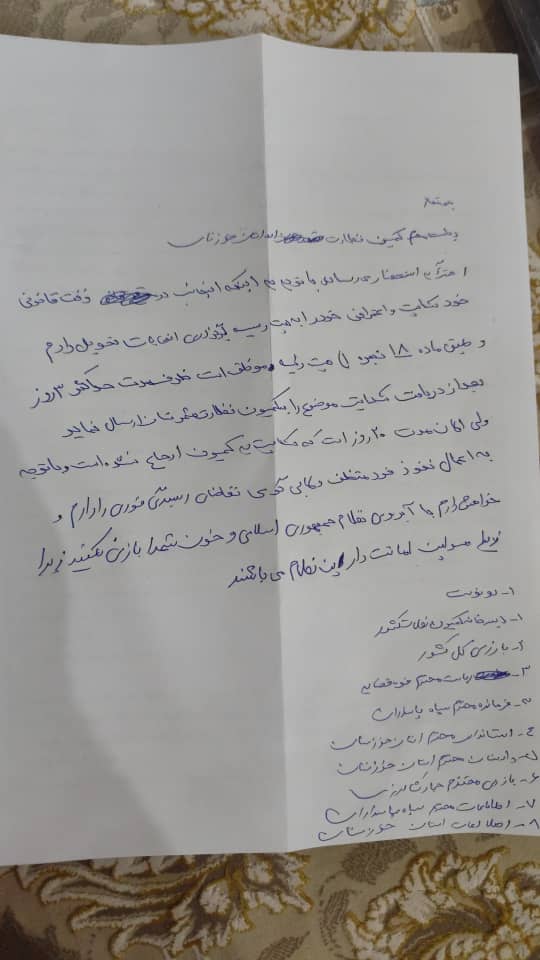 بسمه تعالی
ریاست محترم کمیسیون نظارت استان خوزستان
احتراماً به استحضار می‌رساند با توجه به اینکه اینجانب در وقت قانونی
خود شکایت و اعتراض خود را به هیت رسیه برگزاری انتخابات تحویل دادم
و طبق ماده ۱۸ تبصره ۱ هیت رئیسه موظف است ظرف مدت حداکثر ۳ روز
بعد از دریافت شکایت موضوع را به کمیسیون نظارت شهرستان ارسال نماید
ولی الان مدت ۲۰ روز است که شکایت به کمیسیون ارجاع نشده است و باتوجه
به اعمال نفوذ فرد متخلف تقاضای رسیدگی فوری را دارم و
خواهش دارم با آبروی نظام جمهوری اسلامی و خون شهدا بازی نکنید زیرا
مسولین امانت دار این نظام می باشند
۱- رونوشت
۱- دبیرخانه کمیسیون نظارت کشور
۲- بازرسی کل کشور
۳- ریاست محترم قوه قضایه
فرمانده محترم سپاه پاسداران
۴- استاندار محترم استان خوزستان
۵- دادستان محترم استان خوزستان
۶- بازرسی محترم
۷- اطلاعات محترم سپاه پاسداران
۸- اطلاعات استان خوزستان